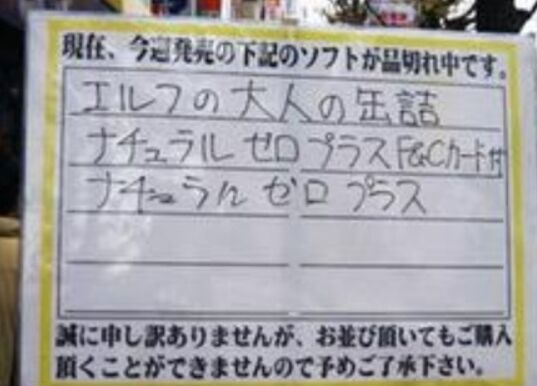 現在、今週発売の下記のソフトが品切れ中です。
エルフの大人の缶詰
ナチュラルゼロプラスF&Cカード付
ナチュラルゼロプラス
誠に申し訳ありませんが、お並び頂いてもご購入
頂くことができませんので予めご了承下さい。